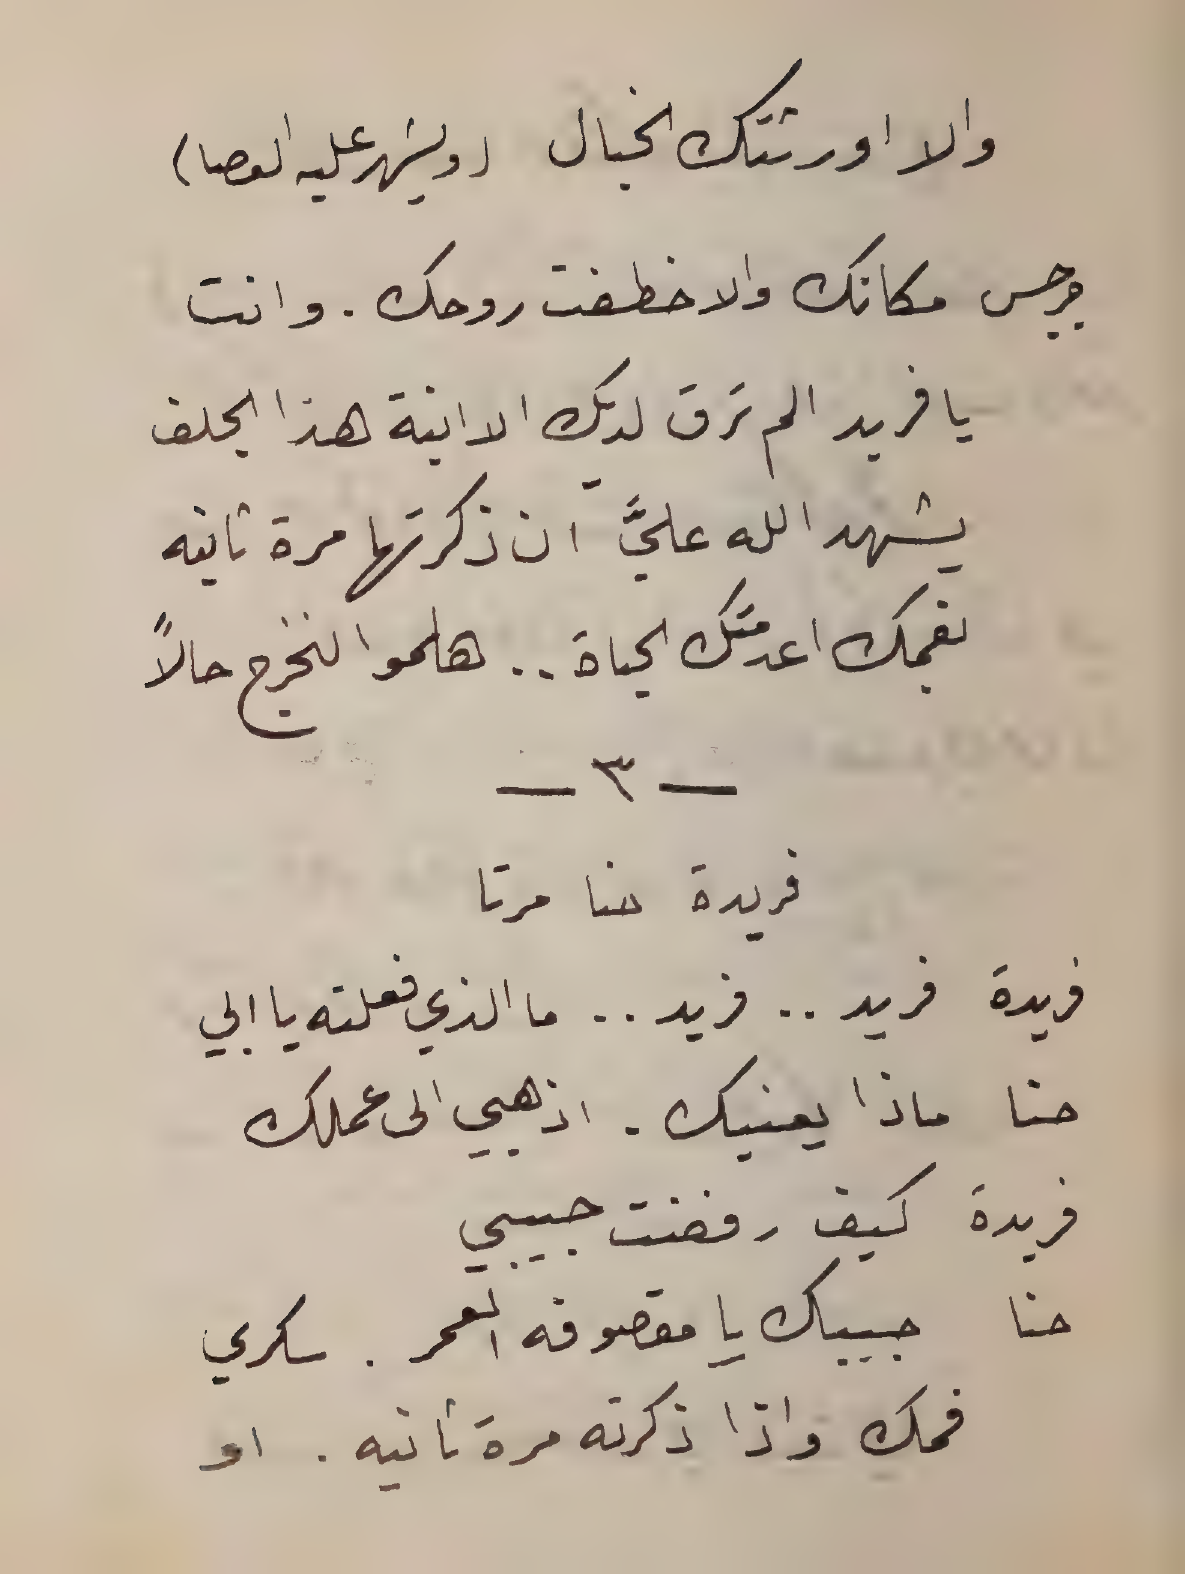 والا اورثتك الخبال (ويشهر عليه العصا)
جرجس مكانك والا خطفت روحك . وانت
يا فريد الم ترق لديك الا ابنة هذا الجلف
يشهد الله عليَّ ان ذكرتها مرة ثانيه
بفمك اعدمتك الحياة .. هلموا لنخرج حالاً
— ٣ —
فريدة حنا مرتا
فريدة فريد .. فريد .. ما الذي فعلته يا ابي
حنا ماذا يعنيك . اذهبي الى عملك
فريدة كيف رفضت حبيبي
حنا حبيبك يا مقصوفه العمر . سكري
فمك واذا ذكرته مرة ثانيه . او